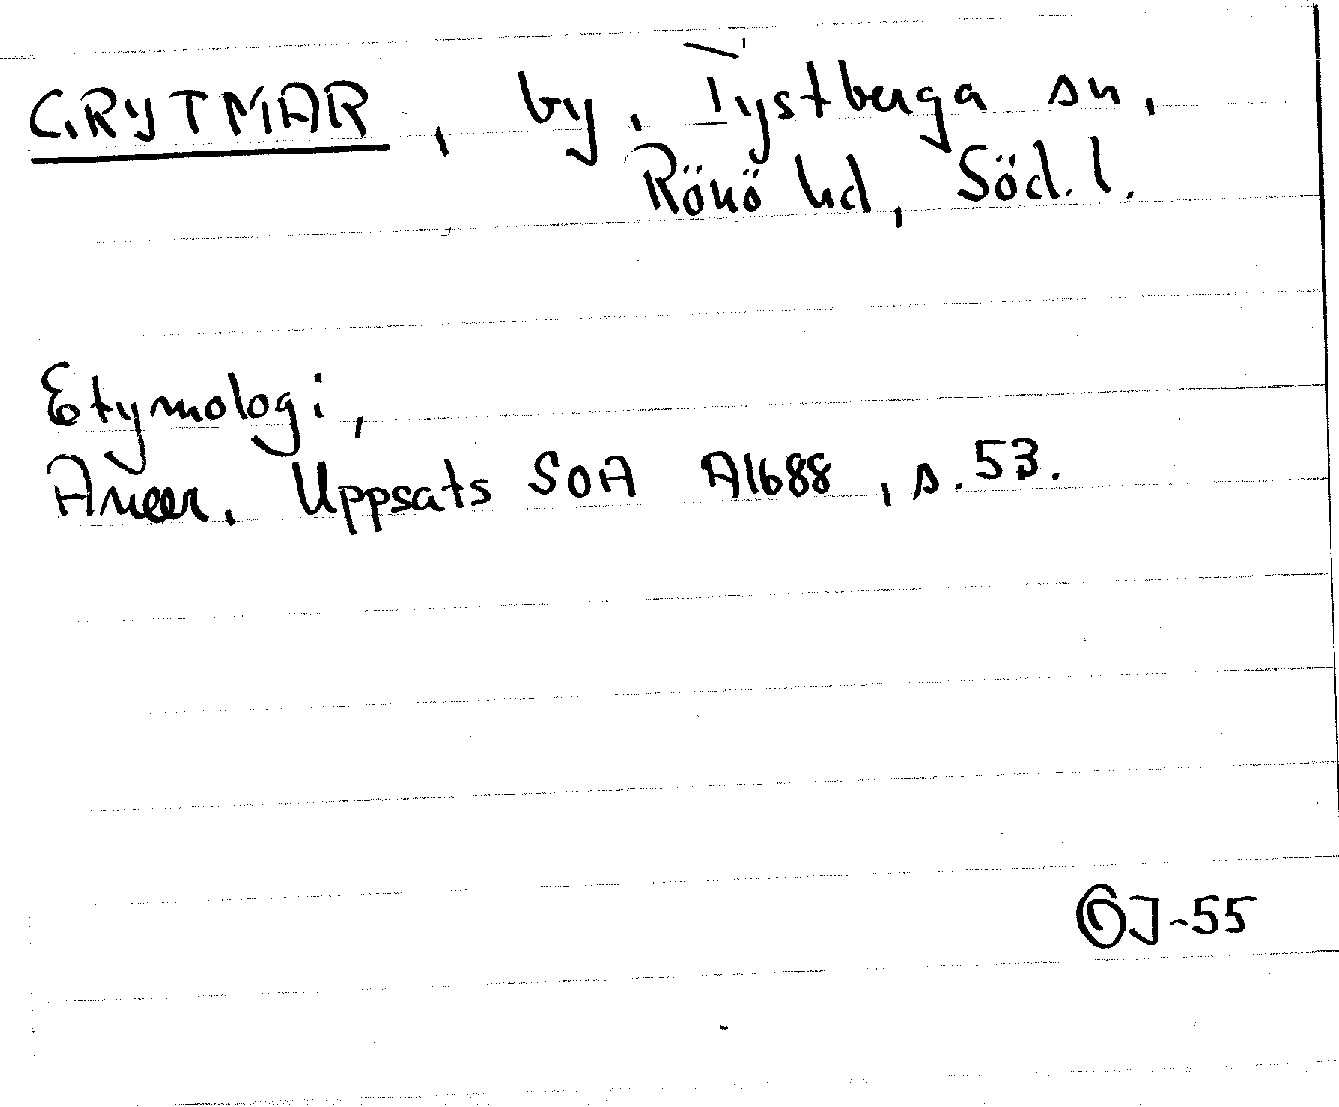 GRYTMAR, by, Tystberga sn,
Rönö hd, Söd. l.
Etymologi,
Aneer, Uppsats SOA A1688, s. 53.
GJ-55